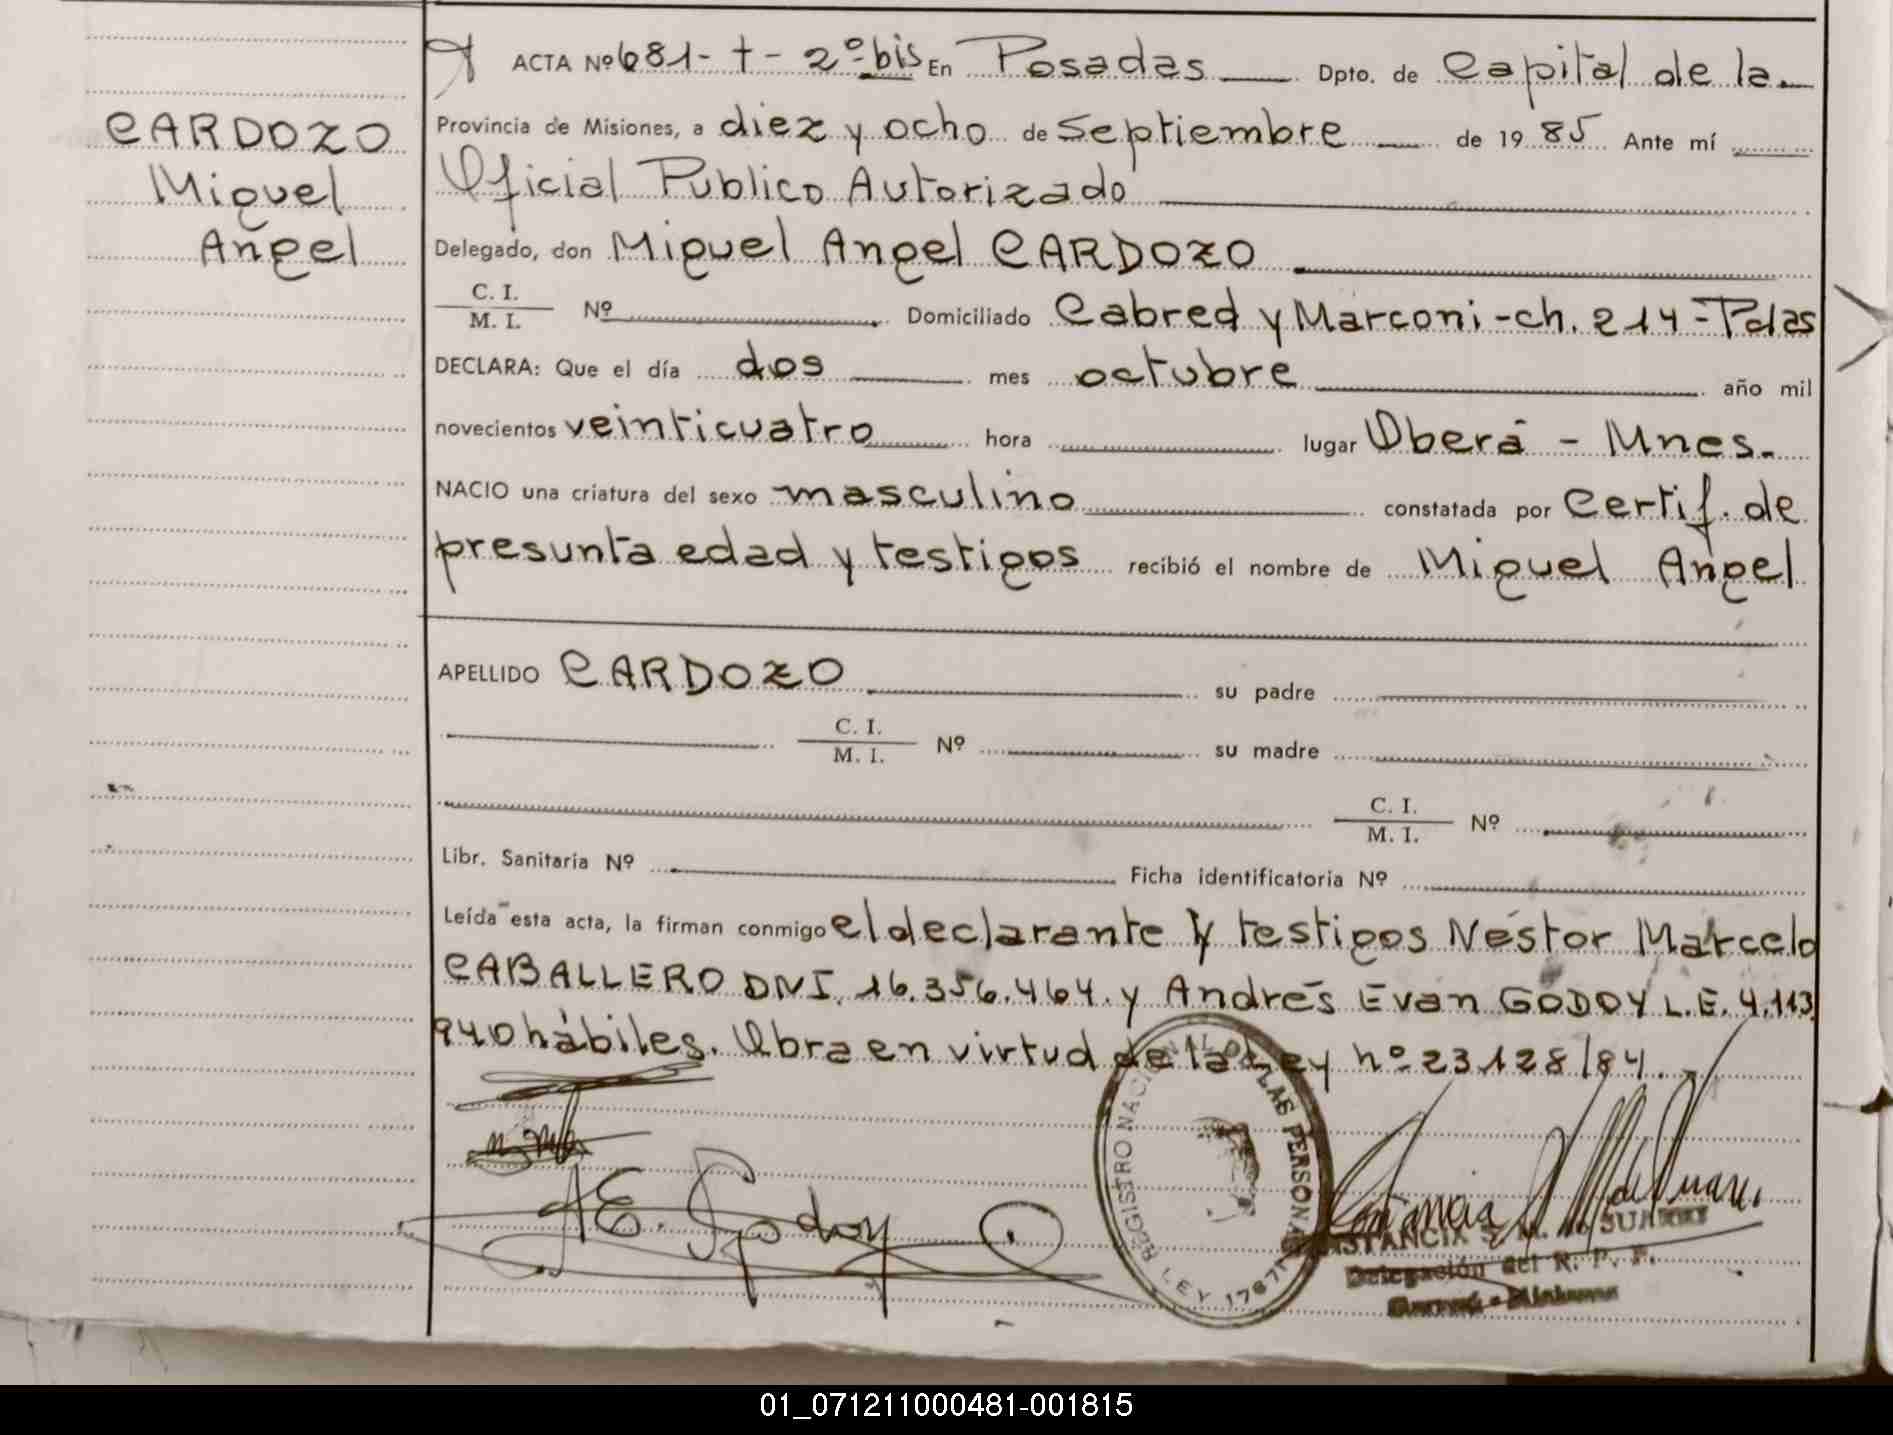 ACTA Nº 681-t-2º-bis En Posadas Dpto. de Capital de la
CARDOZO
Miguel
Angel
Provincia de Misiones, a diez y ocho de Septiembre de 1985 Ante mí
Oficial Publico Autorizado
Delegado, don Miguel Angel CARDOZO
C. I.
M. I. Nº Domiciliado Cabred y Marconi-ch. 214-Pdas
DECLARA: Que el día dos mes octubre año mil
novecientos veinticuatro hora lugar Oberá - Mnes.
NACIO una criatura del sexo masculino constatada por Certif. de
presunta edad y testigos recibió el nombre de Miguel Angel
APELLIDO CARDOZO su padre
C. I.
M. I. Nº su madre
C. I.
M. I. Nº
Libr. Sanitaria Nº Ficha identificatoria Nº
Leída esta acta, la firman conmigo el declarante y testigos Néstor Marcelo
CABALLERO DNI. 16.356.464. y Andrés Evan GODOY L.E. 4.113.
940 hábiles. Obra en virtud de la Ley nº 23.128/84.
A E. Godoy
REGISTRO NACIONAL DE LAS PERSONAS
LEY 17671
CONSTANCIA S. M. de SUAREZ
Delegación del R. P. P.
01_071211000481-001815